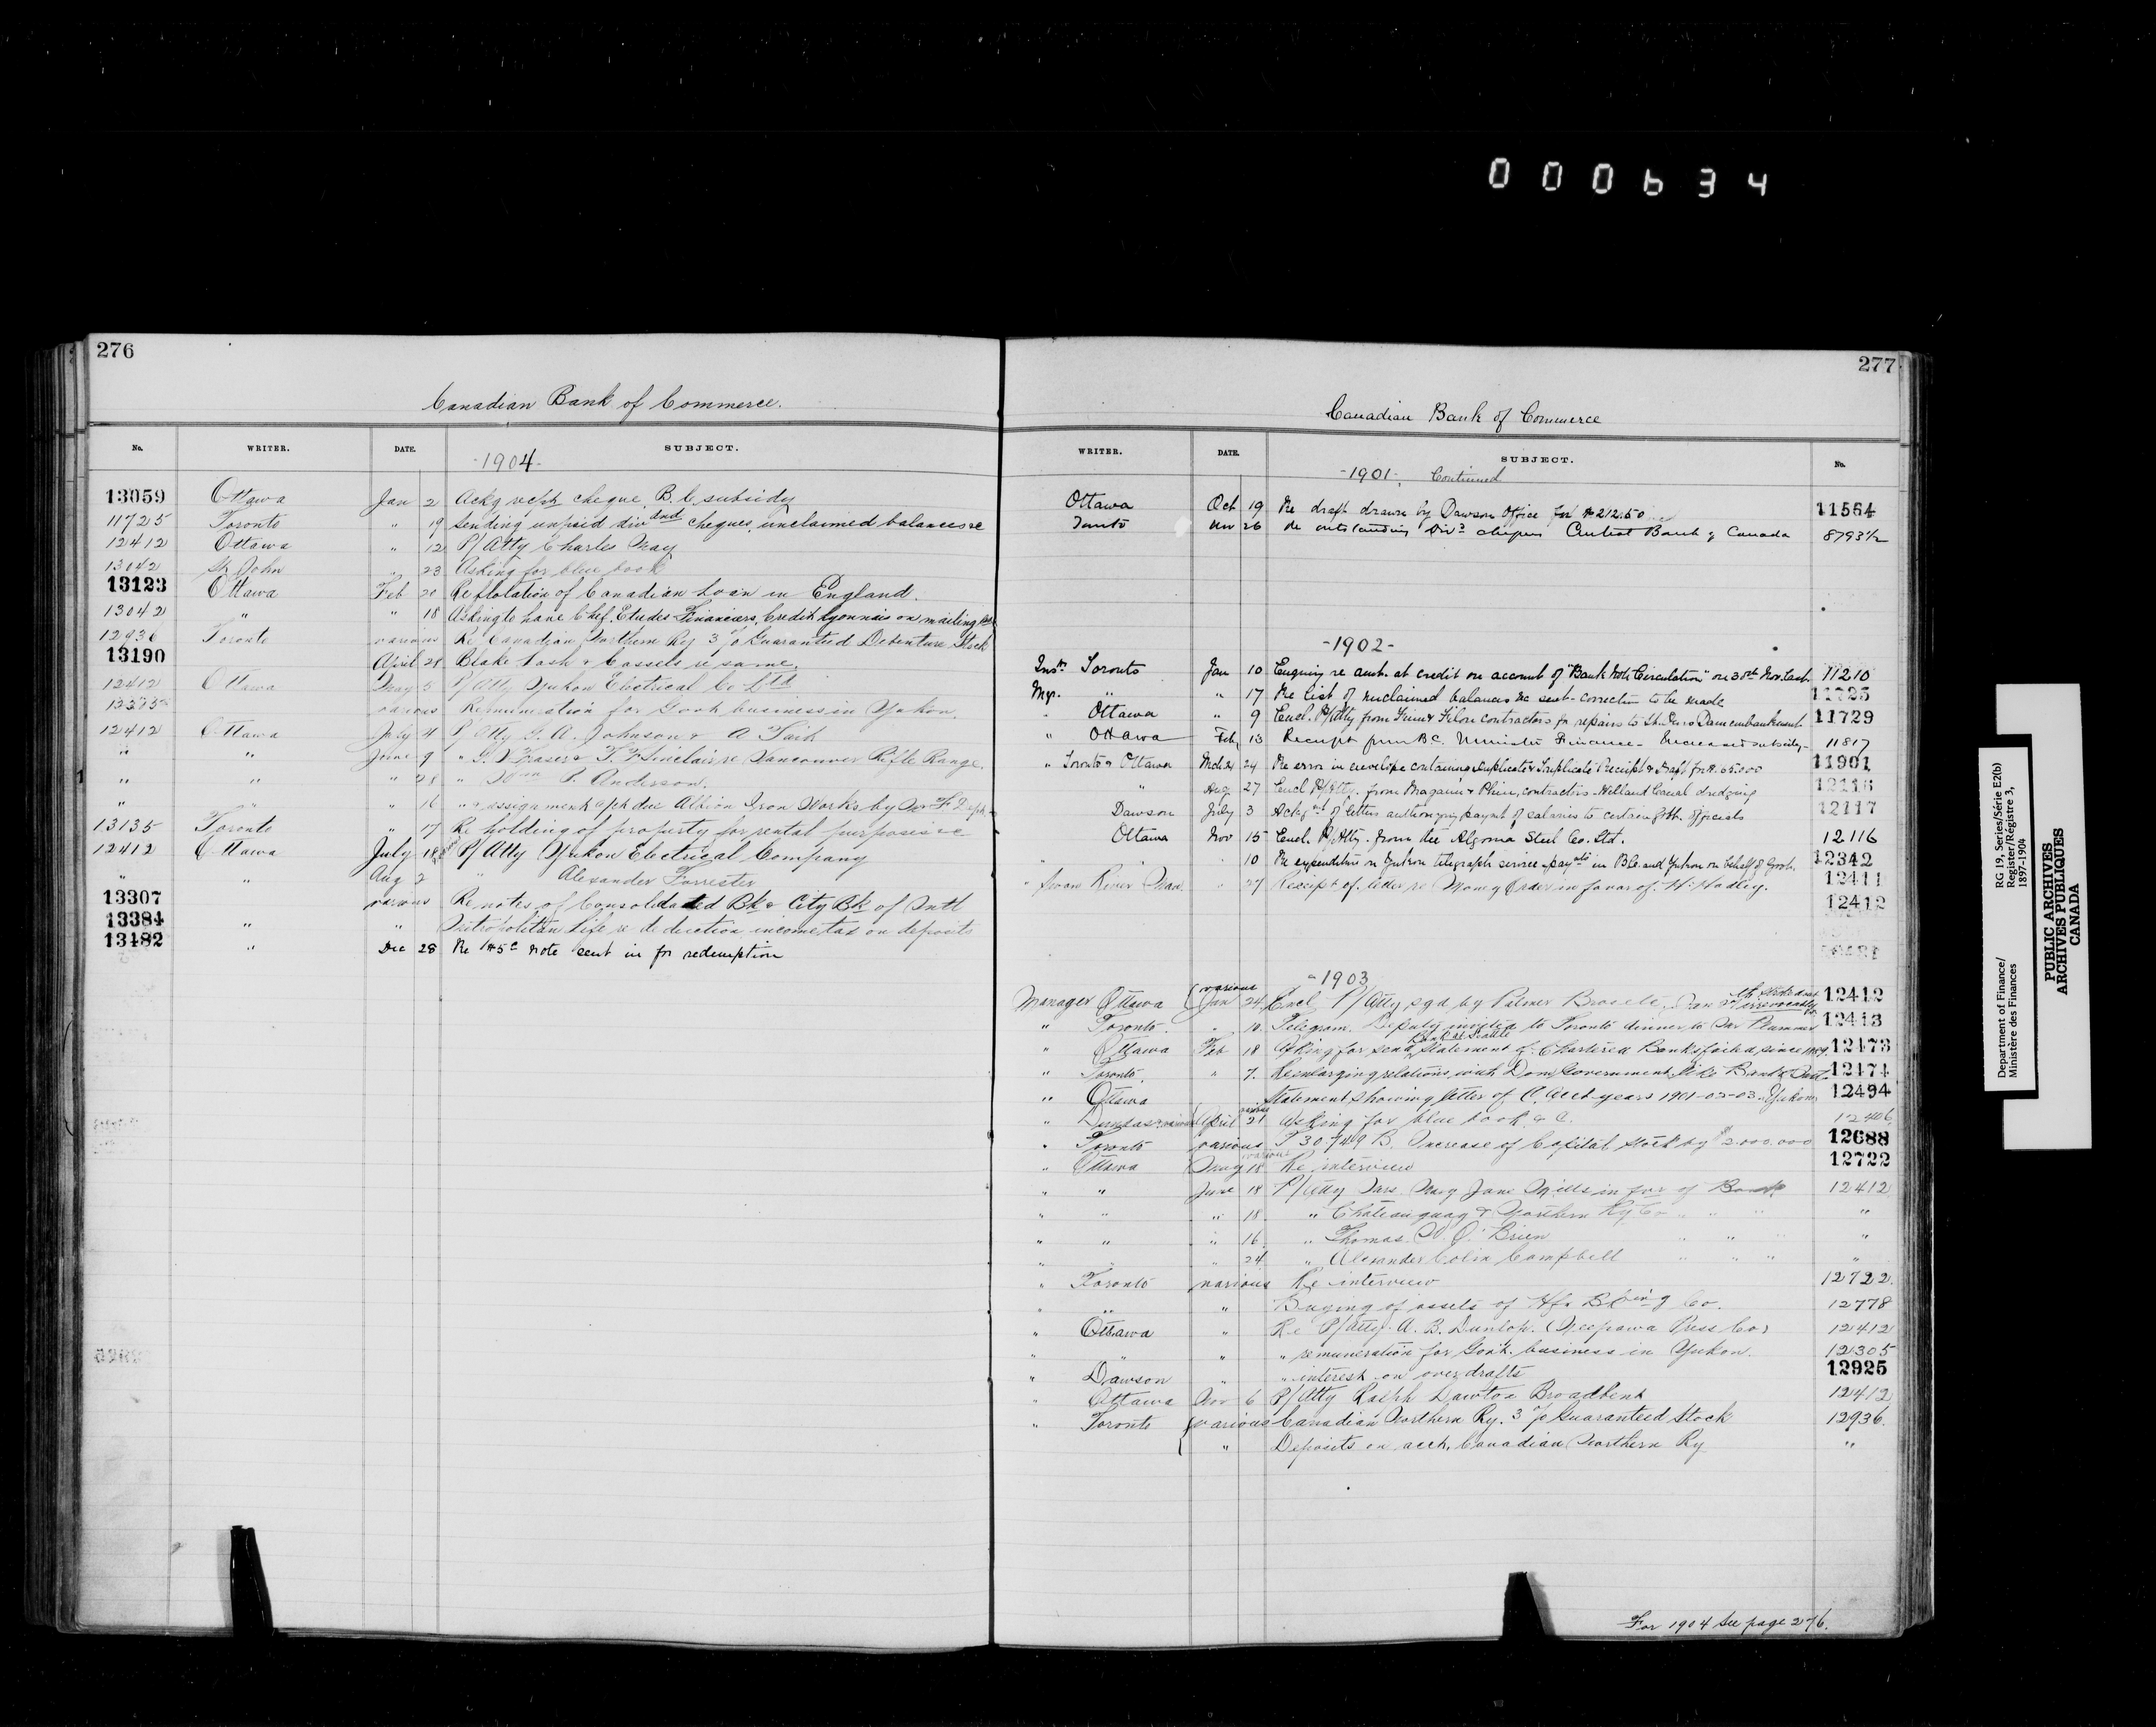 000634
276
Canadian Bank of Commerce.
No. WRITER. DATE. SUBJECT.
-1904-
13059 Ottawa Jan 2 Ackg recpt cheque B.C subsidy
11725 Toronto " 19 Sending unpaid divdend cheques, unclaimed balances re
12412 Ottawa " 12 P/Atty Charles May
13042 St John " 23 Asking for blue book
13123 Ottawa Feb 20 Re flotation of Canadian loan in England.
13042 " " 18 Asking to have Chef. Etudes Financiers, Credit Lyonnais on mailing
12936 Toronto various Re Canadian Northern Ry 3% Guaranteed Debenture Stock
13190 April 28 Blake Lash & Cassels re same.
12412 Ottawa May 5 P/Atty Yukon Electrical Co Ltd
various Remuneration for Govt business in Yukon.
12412 Ottawa July 4 P/Atty G. A. Johnson & A Tait
" " June 9 " Fraser & Sinclair re Vancouver Rifle Range.
" " " 28 " Wm P. Anderson.
" " " 16 " assignment Albion Iron Works by
13135 Toronto " 17 Re holding of property for rental purposes re
12412 Ottawa July 18 P/Atty Yukon Electrical Company
" " Aug 2 " Alexander Forrester
13307 various Re notes of Consolidated Bk & City Bk of Mntl
13384 " " Metropolitan Life re deduction income tax on deposits
13482 " Dec 28 Re note sent in for redemption
277
Canadian Bank of Commerce
WRITER. DATE. SUBJECT. No.
-1901- Continued
Ottawa Oct 19 Re draft drawn by Dawson Office for $212.50 11564
26 re outstanding Divd cheques Central Bank of Canada 8793½
-1902-
Toronto Jan 10 Enquiry re amt. at credit on account of "Bank Note Circulation" on 30th Nov. last. 11210
Mgr. " " 17 Re list of unclaimed balances sent - correction to be made 11725
" Ottawa " 9 Encl. P/Atty from contractors for repairs to Dam embankment 11729
" Ottawa Feb. 13 Receipt from B.C. Minister Finance - Increased subsidy - 11817
" Toronto & Ottawa 24 Re error in envelope containing duplicate & triplicate Receipt & Draft for 11901
" Aug 27 Encl P/Atty. from contractors Welland Canal dredging 12116
Dawson July 3 of letter authorizing paymt of salaries to certain Govt. officials 12117
Ottawa Nov 15 Encl. P/Atty. from the Algoma Steel Co. 12116
" " " 10 Re expenditure on Yukon telegraph service - paymts in B.C. and Yukon on behalf of Govt. 12342
" Swan River Man. " 27 Receipt of letter re Money Order in favor of H. Hadley. 12411
12412
-1903
Manager Ottawa various Jan 24 Encl P/Atty, sgd by Palmer Bros 12412
" Toronto. " 10. Telegram. Deputy invited to Toronto dinner to 12413
" Ottawa Feb 18 Asking for Statement of Chartered Banks failed since 12473
" Toronto " 7. Re enlarging relations with Dom Government 12474
" Ottawa Statement showing letter of C. Acct years 1901-02-03. Yukon 12494
" Dundas & various April 21 Asking for blue book &c. 12406
" Toronto various T 30749 B. Increase of Capital Stock by $2.000.000 12688
" Ottawa May 18 Re interview 12722
" " June 18 P/Atty Mrs. Mary Jane Mills in fav of Bank 12412
" " " 18 " Chateauguay & Northern Ry Co " " " "
" " " 16 " Thomas O'Brien " " " "
" " " 24 " Alexander Colin Campbell " " " "
" Toronto various Re interview 12722.
" " " Buying of assets of Hfx Bking Co. 12778
" Ottawa " Re P/Atty. A. B. Dunlop. (Neepawa Press Co) 12412
" " " " remuneration for Govt. business in Yukon. 12305
" Dawson " " interest on overdrafts 12925
" Ottawa Nov 6 P/Atty Ralph Dawton Broadbent 12412
" Toronto various Canadian Northern Ry. 3% Guaranteed Stock 12936.
" Deposits on acct, Canadian Northern Ry "
For 1904 See page 276.
Department of Finance/
Ministère des Finances
RG 19, Series/Série E2(b)
Register/Régistre 3,
1897-1904
PUBLIC ARCHIVES
ARCHIVES PUBLIQUES
CANADA